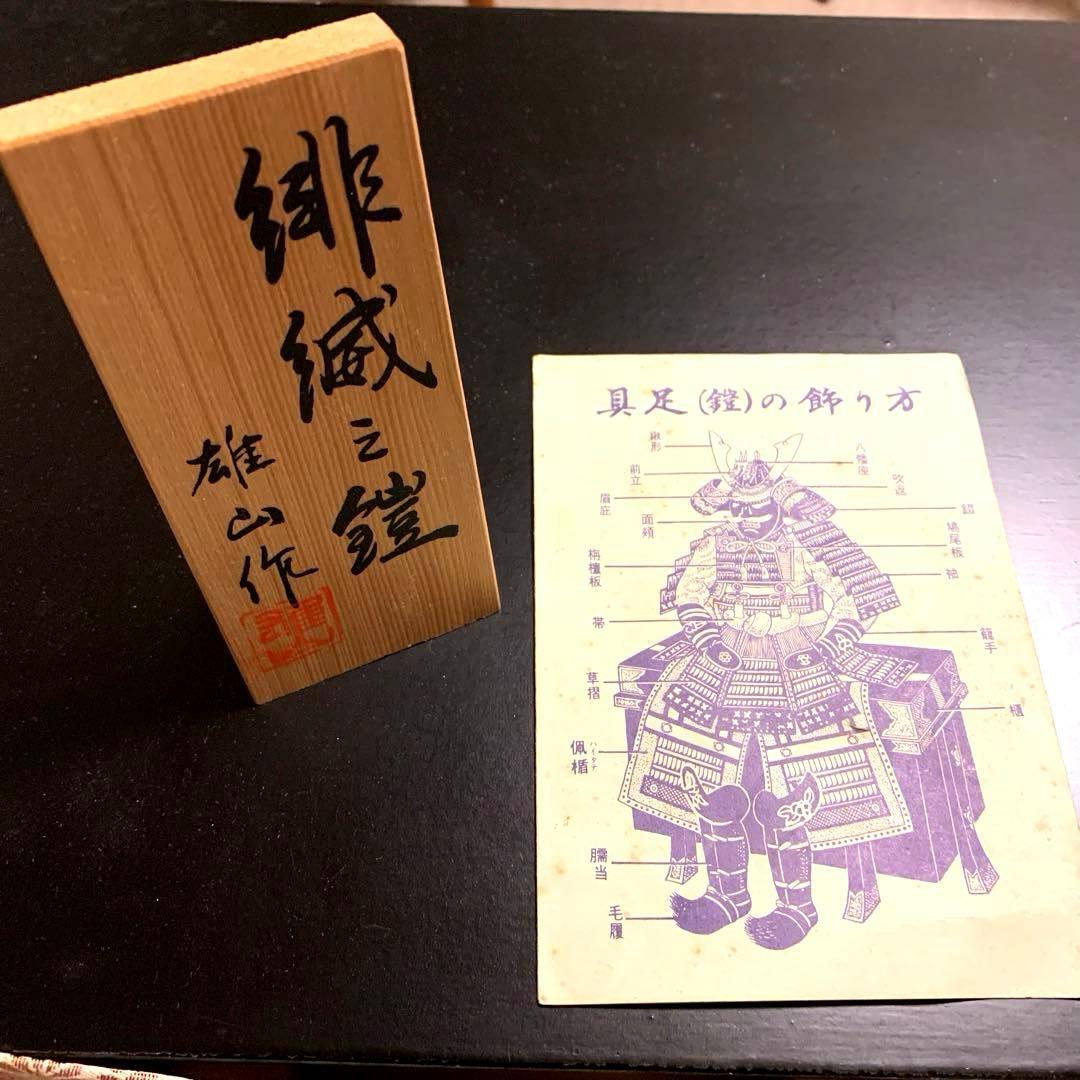 緋縅之鎧
雄山作
具足(鎧)の飾り方
鍬形
八幡座
前立
吹返
眉庇
錣
面頬
鳩尾板
栴檀板
袖
帯
籠手
草摺
櫃
佩楯
ハイタテ
臑当
毛履